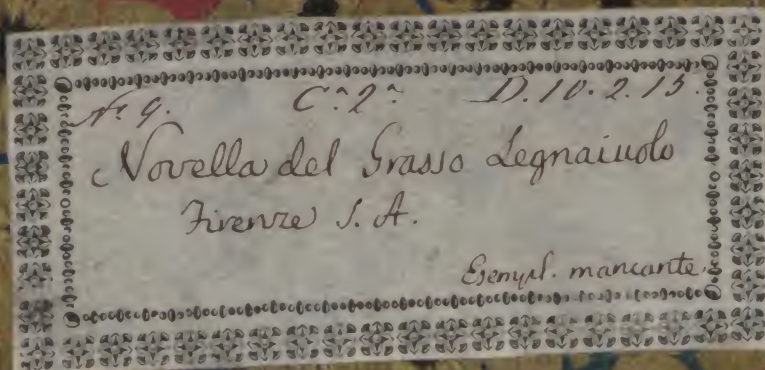 N.º 9. C.ª 2.ª D. 10. 2. 15.
Novella del Grasso Legnaiuolo
Firenze S. A.
Esempl. mancante.